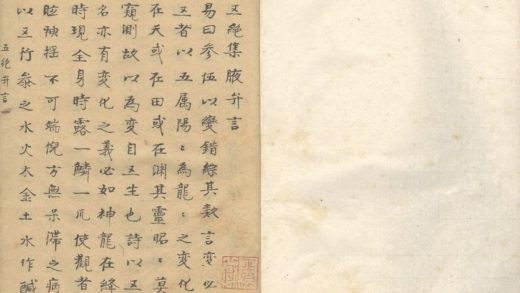 五絕集腋弁言
易曰參伍以變錯綜其數言變必
五者以五属陽〻為龍〻之變化
在天或在田或在渊其靈昭〻莫
窺測故以為变自五生也詩以五
名亦有变化之義必如神龍在絳
時現全身時露一鱗一爪使觀者
眩殃摇不可端倪方無呆滞之病
以五行叅之水火木金土水作鹹
五絕弁言